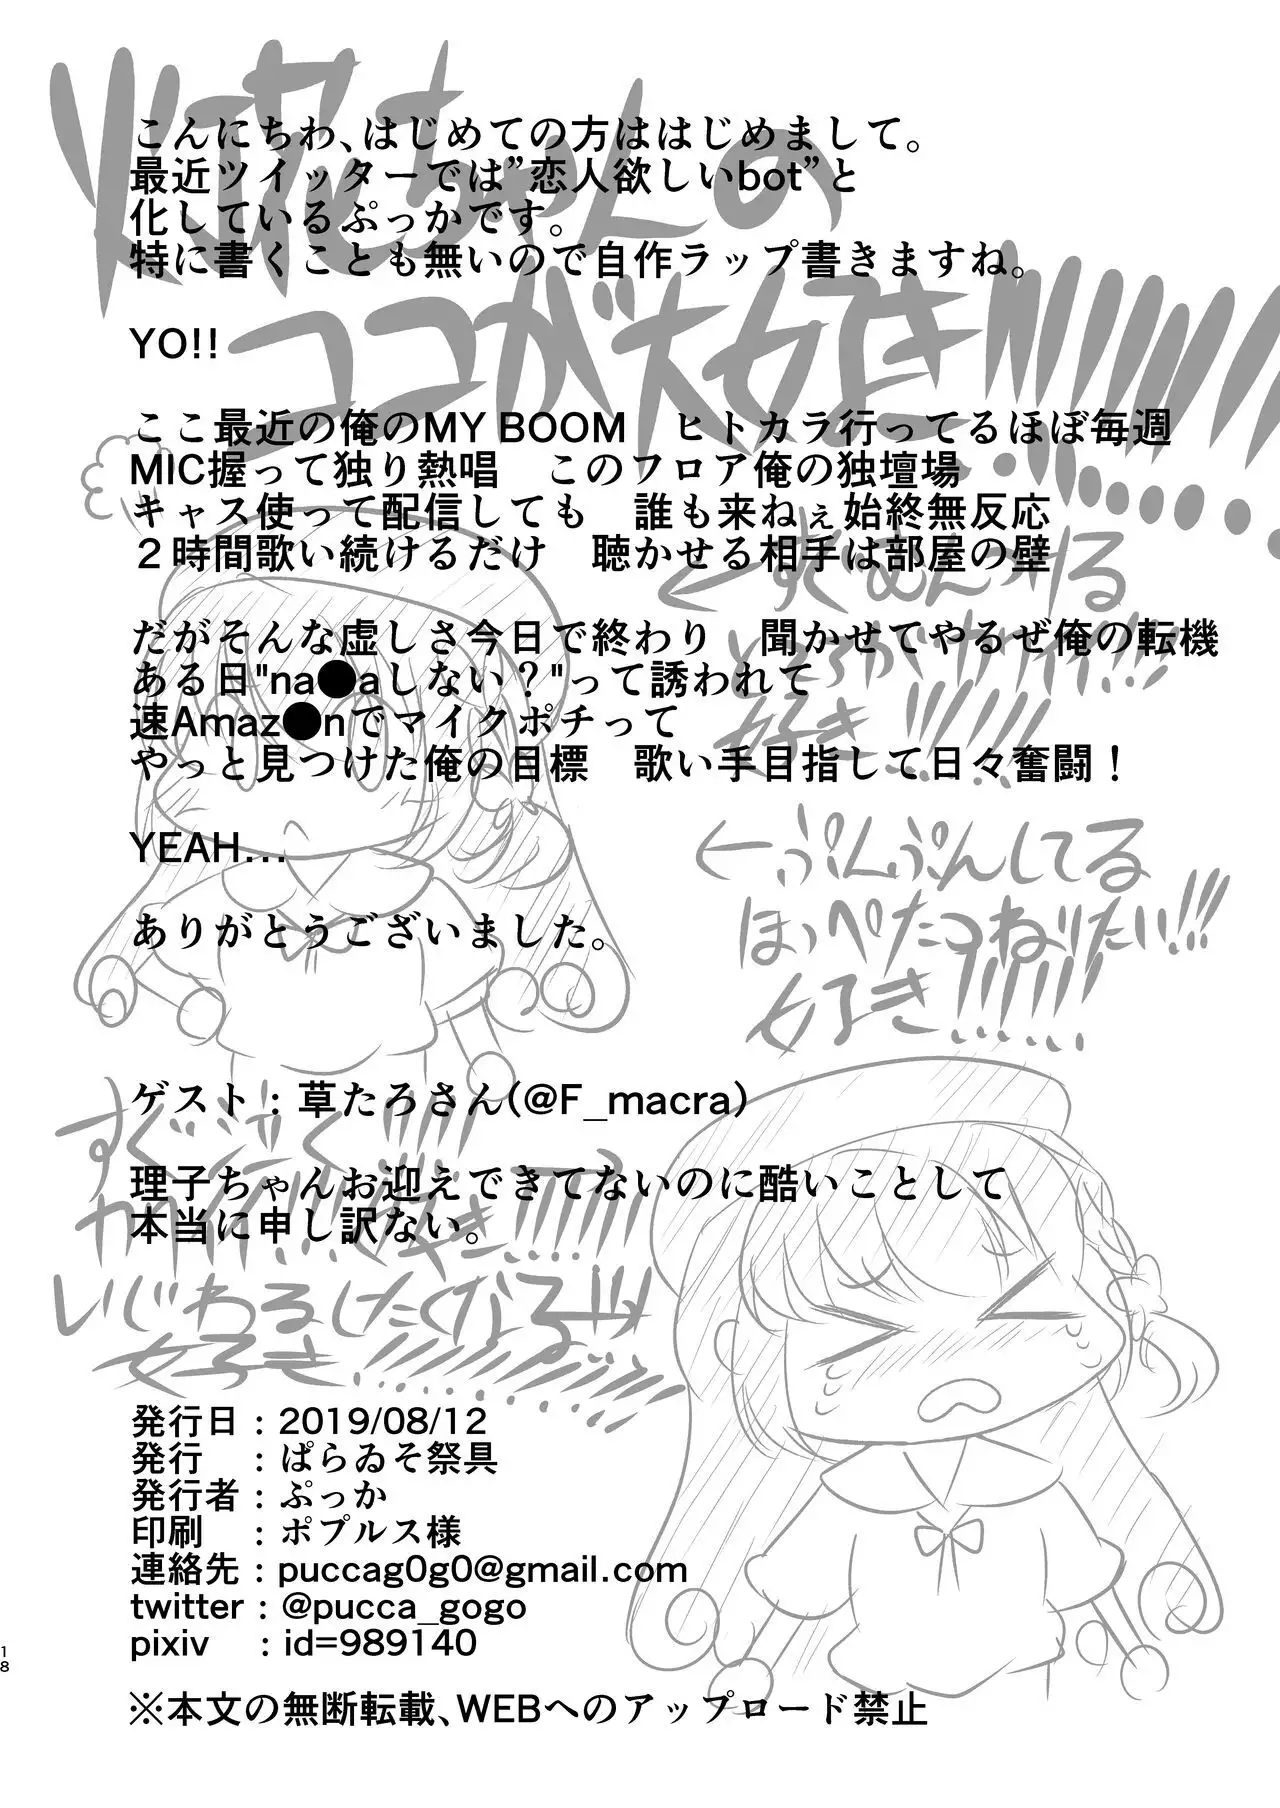 火花ちゃんの
ココが大好き!!!!!!!!!!
こんにちわ、はじめての方ははじめまして。
最近ツイッターでは”恋人欲しいbot”と
化しているぷっかです。
特に書くことも無いので自作ラップ書きますね。
YO!!
ここ最近の俺のMY BOOM　ヒトカラ行ってるほぼ毎週
MIC握って独り熱唱　このフロア俺の独壇場
キャス使って配信しても　誰も来ねぇ始終無反応
２時間歌い続けるだけ　聴かせる相手は部屋の壁
だがそんな虚しさ今日で終わり　聞かせてやるぜ俺の転機
ある日"na●aしない？"って誘われて
速Amaz●nでマイクポチって
やっと見つけた俺の目標　歌い手目指して日々奮闘！
YEAH...
ありがとうございました。
←すぐむんつける
ところがカワイイ!!!
好き!!!!!!
←ぷんぷんしてる
ほっぺたつねりたい!!!
好き!!!!!!
ゲスト：草たろさん(@F_macra)
理子ちゃんお迎えできてないのに酷いことして
本当に申し訳ない。
いじわるしたくなる!!
好き
発行日：2019/08/12
発行　：ぱらゐそ祭具
発行者：ぷっか
印刷　：ポプルス様
連絡先：puccag0g0@gmail.com
twitter：@pucca_gogo
pixiv　：id=989140
※本文の無断転載、WEBへのアップロード禁止
18